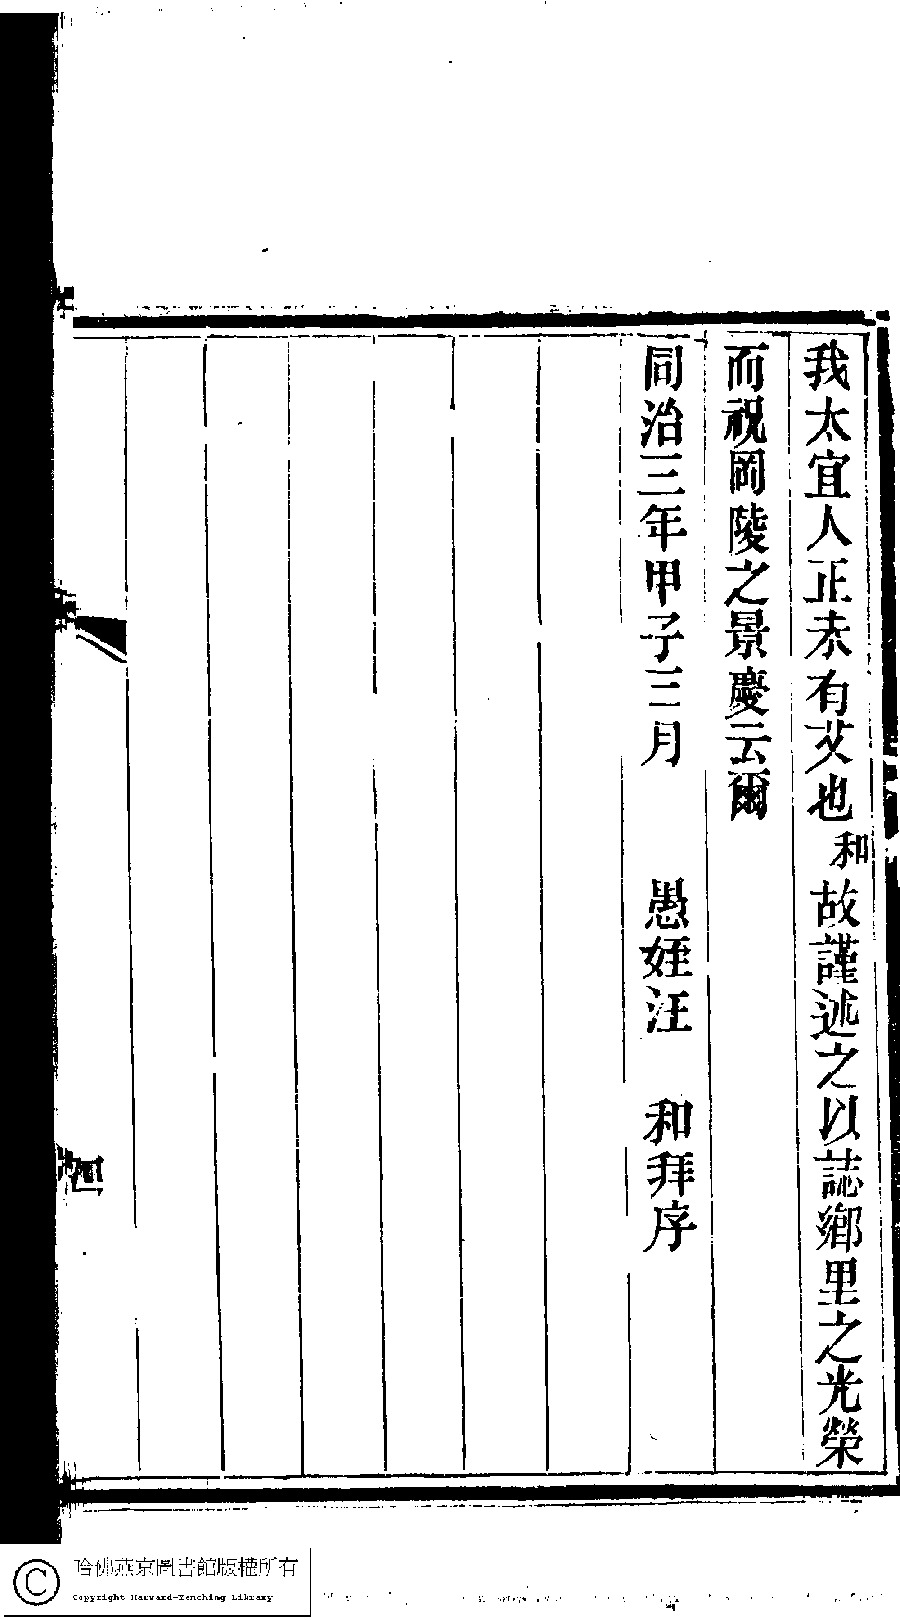 我太宜人正未有艾也和故謹述之以誌鄉里之光榮
而祝岡陵之景慶云爾
同治三年甲子三月　愚姪汪　和拜序
四
哈佛燕京圖書館版權所有
Copyright Harvard-Yenching Library